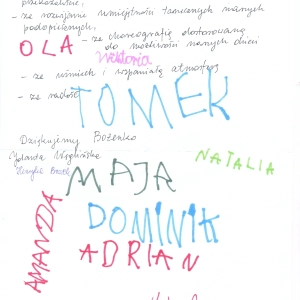 przedszkolu,
- za rozwijanie umiejętności tanecznych naszych
podopiecznych,
- za choreografię dostosowaną
OLA
do możliwości naszych dzieci
Wiktoria
- za uśmiech i wspaniałą atmosferę
- za radość
TOMEK
Dziękujemy Bożenko
Jolanta
NATALIA
MAJA
AMANDA
DOMINIK
ADRIAN